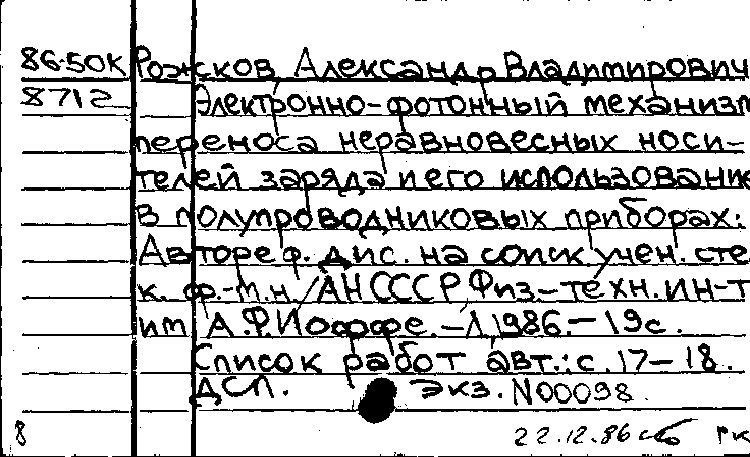 86-50К Рожсков, Александр Владимирович
8712 Электронно-фотонный механизм
переноса неравновесных носи-
телей заряда и его использование
в полупроводниковых приборах:
Автореф. дис. на соиск учен. сте
к. ф.-т.н./АН СССР, Физ.-техн. ин-т
им А.Ф.Иоффе.-Л,1986.-19с.
Список работ авт.: с.17-18.
ДСП. экз. N00098.
8 22.12.86 гк